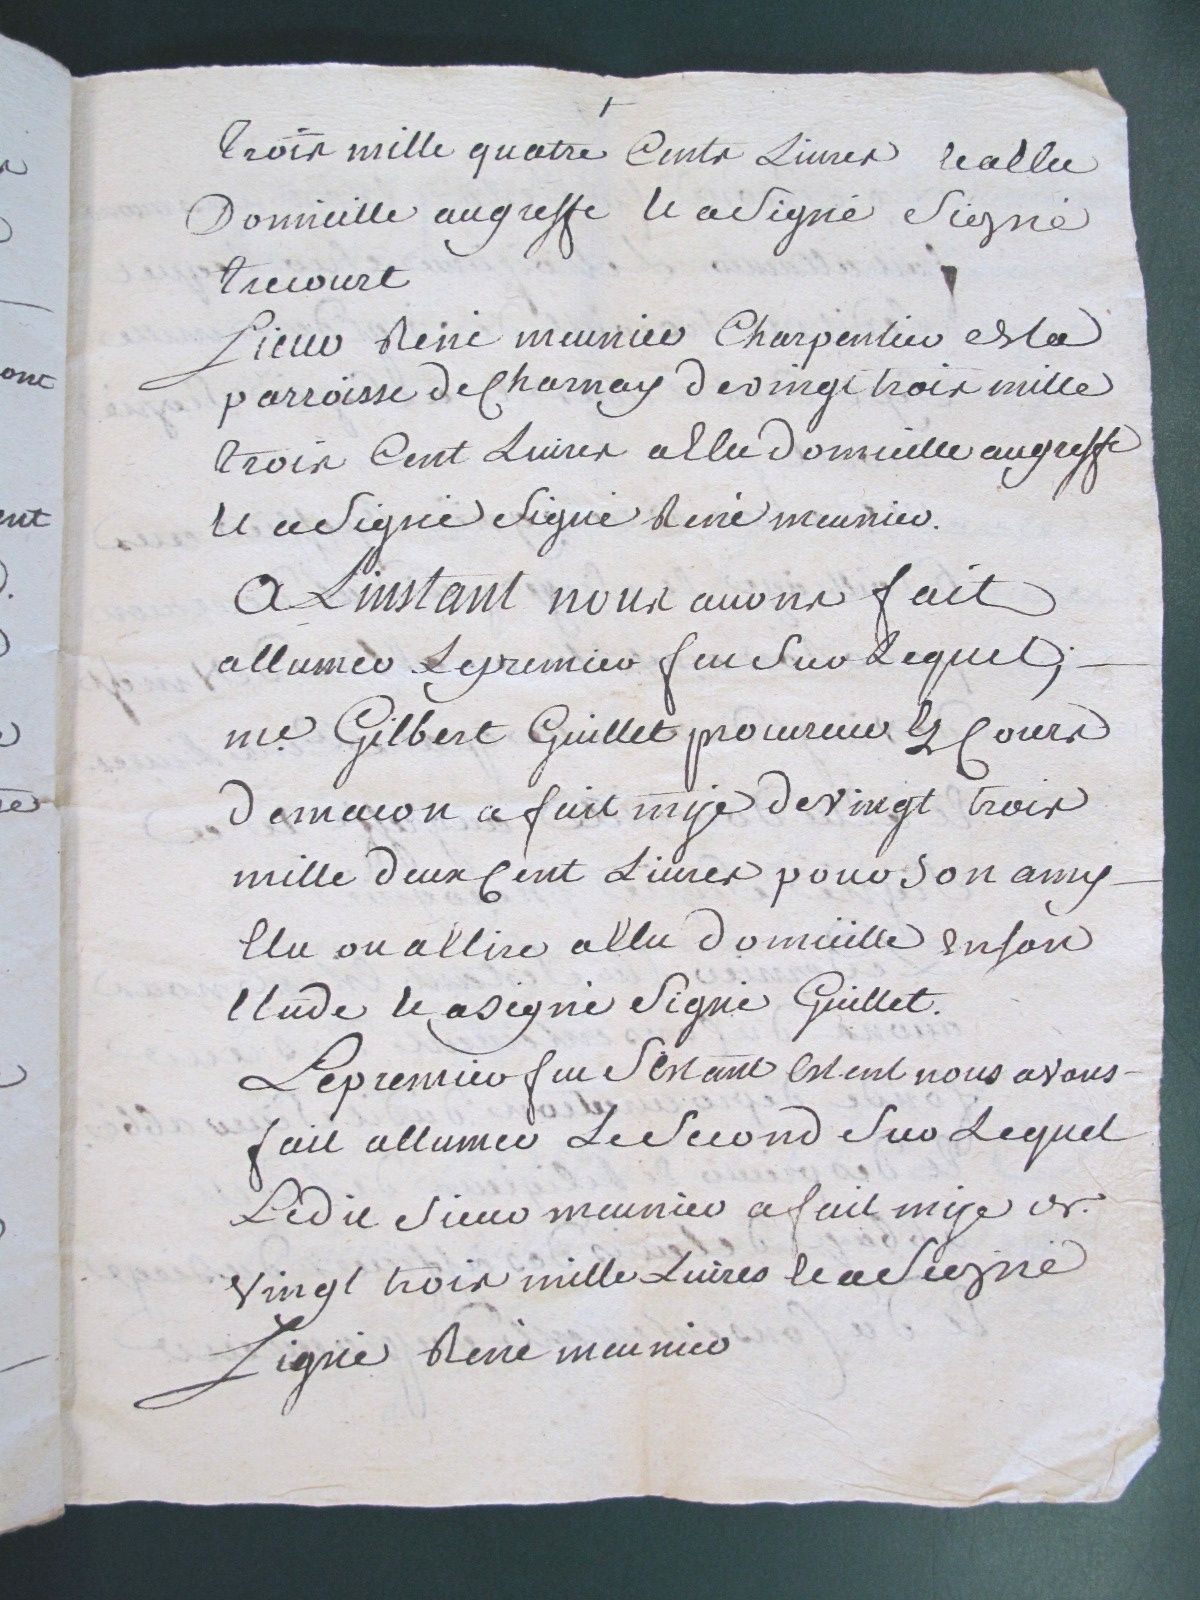 trois mille quatre Cents Livres et a Elu
Domicille au greffe et a Signé Signé
trecourt
Sieur René meunier Charpentier de la
parroisse de Charnay de vingt trois mille
trois Cent Livres a Elu Domicille au greffe
et a Signé Signé René meunier.
A L'instant nous avons fait
allumer Le premier feu Sur Lequel;
me. Gilbert Guillet procureur es Cours
de macon a fait mise de vingt trois
mille deux Cent Livres pour Son amy
Elu ou a Elire a Elu domicille en son
Etude et a signé Signé Guillet.
Le premier feu S'estant Esteint nous avons
fait allumer Le Second Sur Lequel
Ledit Sieur meunier a fait mise de
vingt trois mille Livres et a Signé
Signé René meunier